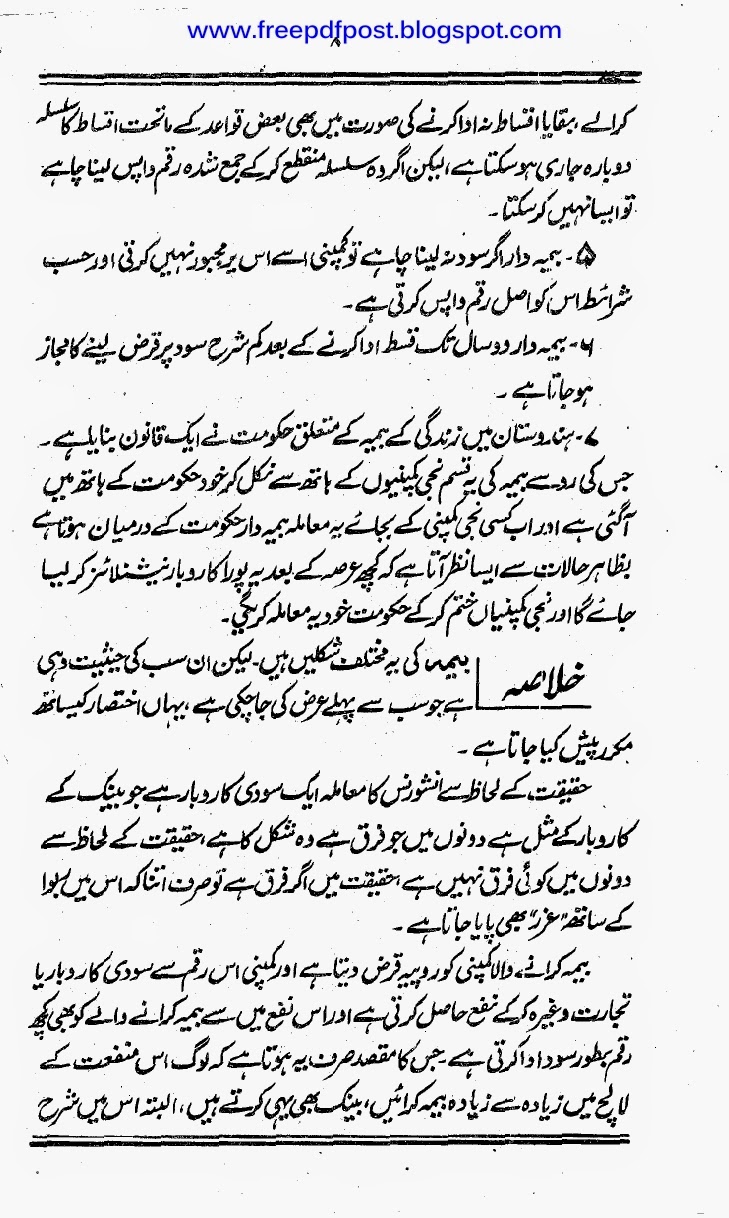 www.freepdfpost.blogspot.com
۸
کرالے، بقایا اقساط نہ ادا کرنے کی صورت میں بھی بعض قواعد کے ماتحت اقساط کا سلسلہ
دوبارہ جاری ہو سکتا ہے، لیکن اگر وہ سلسلہ منقطع کر کے جمع شدہ رقم واپس لینا چاہے
تو ایسا نہیں کر سکتا ۔
۵ - بیمہ دار اگر سود نہ لینا چاہے تو کمپنی اسے اس پر مجبور نہیں کرتی اور حسب
شرائط اس کو اصل رقم واپس کرتی ہے۔
۶- بیمہ دار دو سال تک قسط ادا کرنے کے بعد کم شرح سود پر قرض لینے کا مجاز
ہو جاتا ہے ۔
۷- ہندوستان میں زندگی کے بیمہ کے متعلق حکومت نے ایک قانون بنایا ہے ۔
جس کی رو سے بیمہ کی یہ قسم نجی کمپنیوں کے ہاتھ سے نکل کر خود حکومت کے ہاتھ میں
آگئی ہے اور اب کسی نجی کمپنی کے بجائے یہ معاملہ بیمہ دار حکومت کے درمیان ہوتا ہے
بظاہر حالات سے ایسا نظر آتا ہے کہ کچھ عرصہ کے بعد یہ پورا کاروبار نیشنلائز کر لیا
جائے گا اور نجی کمپنیاں ختم کر کے حکومت خود یہ معاملہ کریگی۔
خلاصہ بیمہ کی یہ مختلف شکلیں ہیں۔ لیکن ان سب کی حیثیت وہی
ہے جو سب سے پہلے عرض کی جاچکی ہے ، یہاں اختصار کیساتھ
مکرر پیش کیا جاتا ہے ۔
حقیقت کے لحاظ سے انشورنس کا معاملہ ایک سودی کاروبار ہے جو بینک کے
کاروبار کے مثل ہے دونوں میں جو فرق ہے وہ شکل کا ہے، حقیقت کے لحاظ سے
دونوں میں کوئی فرق نہیں ہے، حقیقت میں اگر فرق ہے تو صرف اتنا کہ اس میں ربوا
کے ساتھ "غرر" بھی پایا جاتا ہے ۔
بیمہ کرانے والا کمپنی کو روپیہ قرض دیتا ہے اور کمپنی اس رقم سے سودی کاروبار یا
تجارت وغیرہ کر کے نفع حاصل کرتی ہے اور اس نفع میں سے بیمہ کرانے والے کو بھی کچھ
رقم بطور سود ادا کرتی ہے۔ جس کا مقصد صرف یہ ہوتا ہے کہ لوگ اس منفعت کے
لالچ میں زیادہ سے زیادہ بیمہ کرائیں، بینک بھی یہی کرتے ہیں، البتہ اس میں شرح